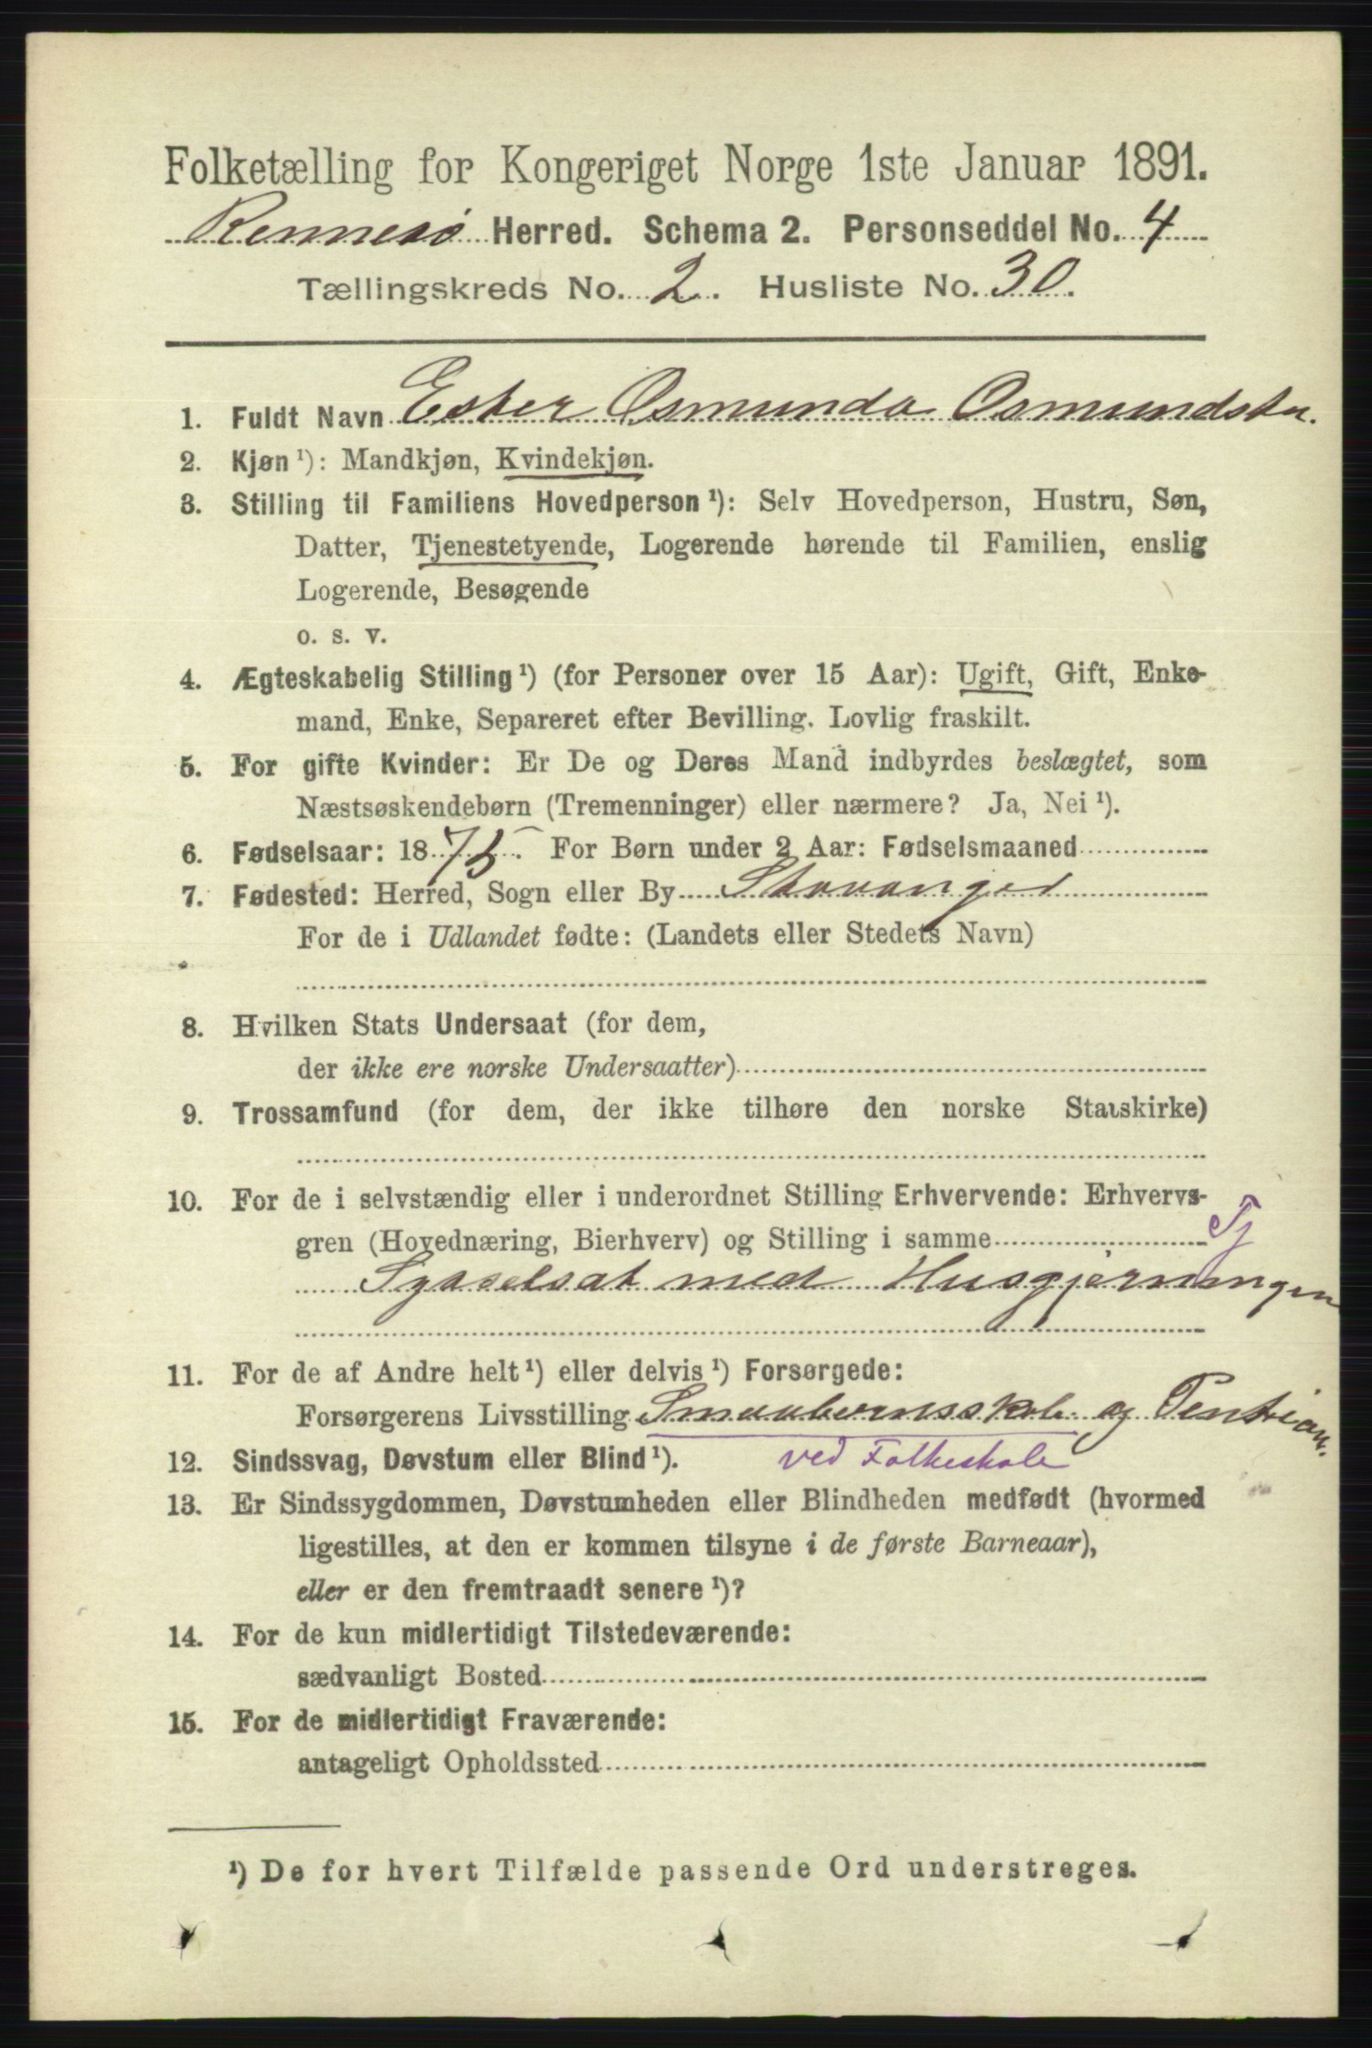 Folketælling for Kongeriget Norge 1ste Januar 1891.
Rennesø Herred. Schema 2. Personseddel No. 4
Tællingskreds No. 2. Husliste No. 30.
1. Fuldt Navn Ester Osmunda Osmundsdtr.
2. Kjøn ¹): Mandkjøn, Kvindekjøn.
3. Stilling til Familiens Hovedperson ¹): Selv Hovedperson, Hustru, Søn,
Datter, Tjenestetyende, Logerende hørende til Familien, enslig
Logerende, Besøgende
o. s. v.
4. Ægteskabelig Stilling ¹) (for Personer over 15 Aar): Ugift, Gift, Enke-
mand, Enke, Separeret efter Bevilling. Lovlig fraskilt.
5. For gifte Kvinder: Er De og Deres Mand indbyrdes beslægtet, som
Næstsøskendebørn (Tremenninger) eller nærmere? Ja, Nei ¹).
6. Fødselsaar: 1875. For Børn under 2 Aar: Fødselsmaaned
7. Fødested: Herred, Sogn eller By Stavanger
For de i Udlandet fødte: (Landets eller Stedets Navn)
8. Hvilken Stats Undersaat (for dem,
der ikke ere norske Undersaatter)
9. Trossamfund (for dem, der ikke tilhøre den norske Statskirke)
10. For de i selvstændig eller i underordnet Stilling Erhvervende: Erhvervs-
gren (Hovednæring, Bierhverv) og Stilling i samme Tj
Sysselsat med Husgjerningen
11. For de af Andre helt ¹) eller delvis ¹) Forsørgede:
Forsørgerens Livsstilling og
12. Sindssvag, Døvstum eller Blind ¹). ved Folkeskole
13. Er Sindssygdommen, Døvstumheden eller Blindheden medfødt (hvormed
ligestilles, at den er kommen tilsyne i de første Barneaar),
eller er den fremtraadt senere ¹)?
14. For de kun midlertidigt Tilstedeværende:
sædvanligt Bosted
15. For de midlertidigt Fraværende:
antageligt Opholdssted
¹) De for hvert Tilfælde passende Ord understreges.